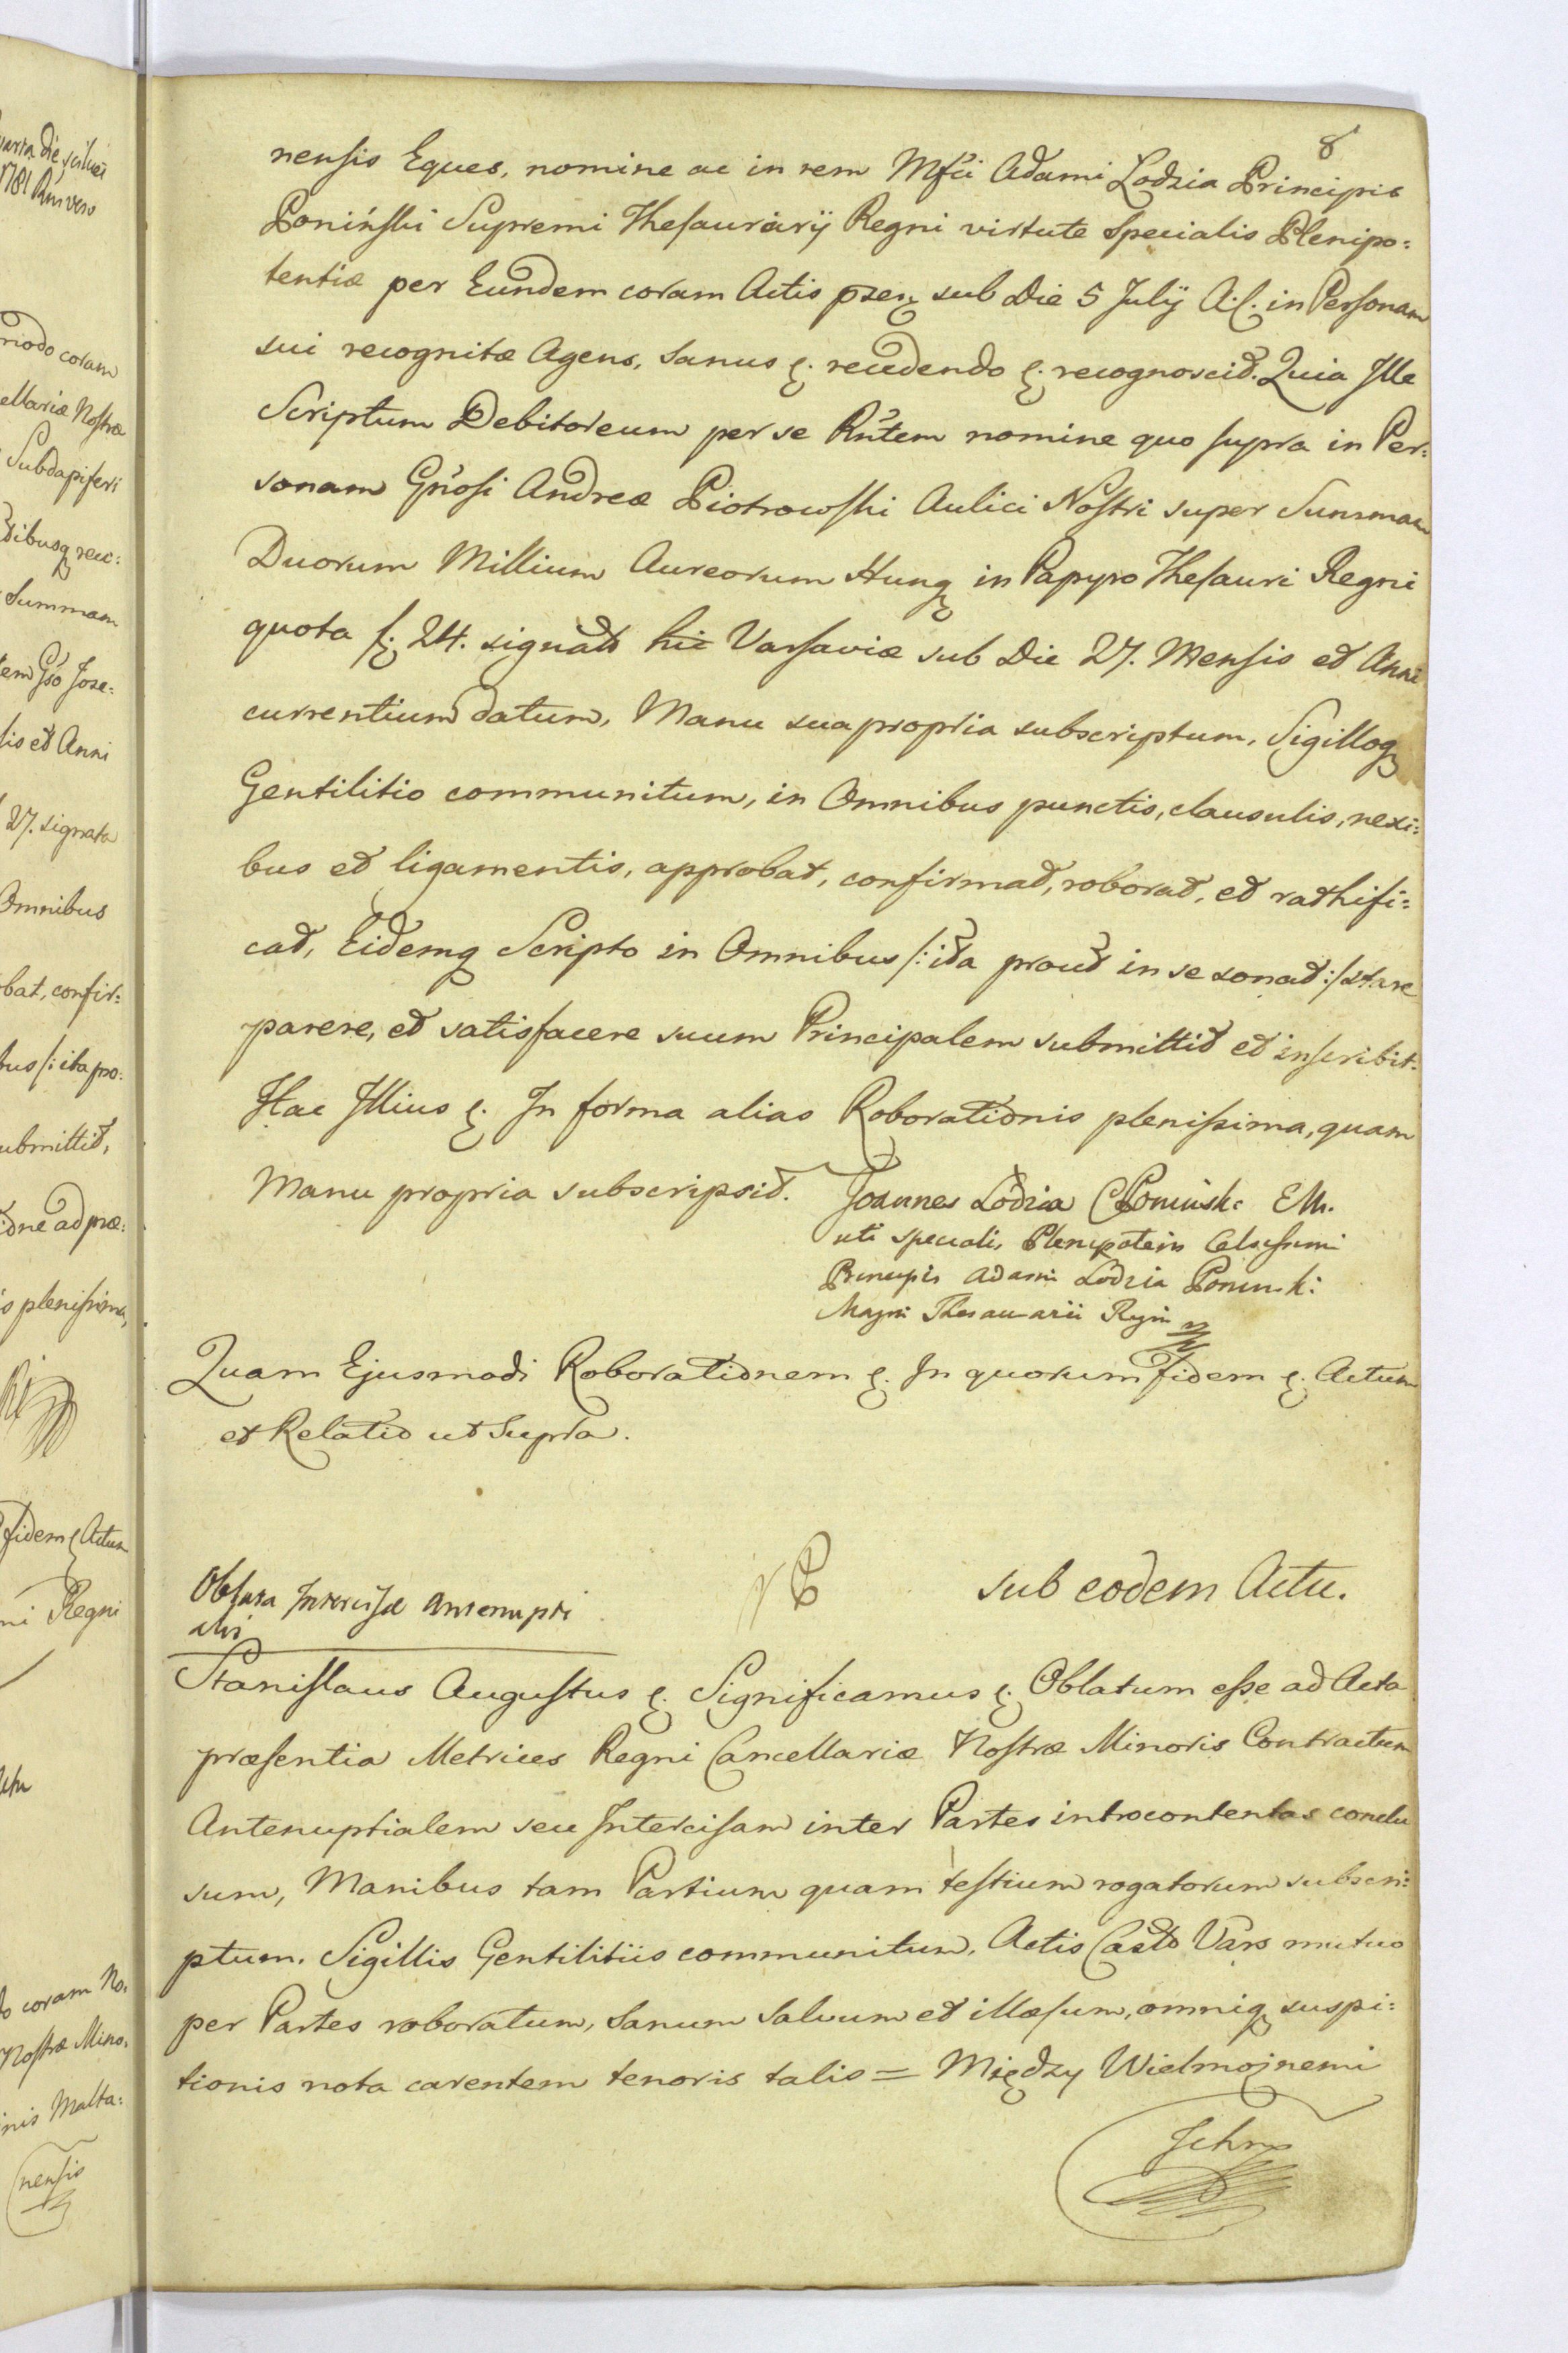 8
nensis Eques, nomine ac in rem Mfci Adami Lodzia Principis
Poniński Supremi Thesaurarÿ Regni virtute specialis Plenipo:
tentiæ per Eundem coram Actis psen. sub Die 5 Julÿ A. C. in Personam
sui recognitæ Agens, sanus &. recedendo &. recognoscit. Quia Ille
Scriptum Debitoreum per se Rñtem nomine quo supra in Per:
sonam Gñosi Andreæ Piotrowski Aulici Nostri super Summam
Duorum Millium Aureorum Hung in Papyro Thesauri Regni
quota f. 24. signato hic Varsaviæ sub Die 27. Mensis et Anni
currentium datum, Manu sua propria subscriptum, Sigilloq
Gentilitio communitum, in Omnibus punctis, clausulis, nexi:
bus et ligamentis, approbat, confirmat, roborat, et rathifi:
cat, Eidemq Scripto in Omnibus /: ita prout in se sonat :/ stare
parere, et satisfacere suum Principalem submittit et inscribit.
Hac Illius &. In forma alias Roborationis plenissima, quam
Manu propria subscripsit.
Joannes Lodzia Poninski E M.
uti speciali, Plenipotens Celsissimi
Principis Adami Lodzia Poninski
Magni Thesaurarii Regni
Quam Ejusmodi Roborationem &. In quorum fidem &. Actum
et Relatio ut Supra.
Oblata Intercisæ Antenupti
alis
sub eodem Actu.
Stanislaus Augustus &. Significamus &. Oblatum esse ad Acta
præsentia Metrices Regni Cancellariæ Nostræ Minoris Contractum
Antenuptialem seu Intercisam inter Partes introcontentas conclu
sum, Manibus tam Partium quam testium rogatorum subscri:
ptum. Sigillis Gentilitiis communitum, Actis Casto Vars mutuo
per Partes roboratum, sanum salvum et illæsum, omniq suspi:
tionis nota carentem tenoris talis = Między Wielmożnemi